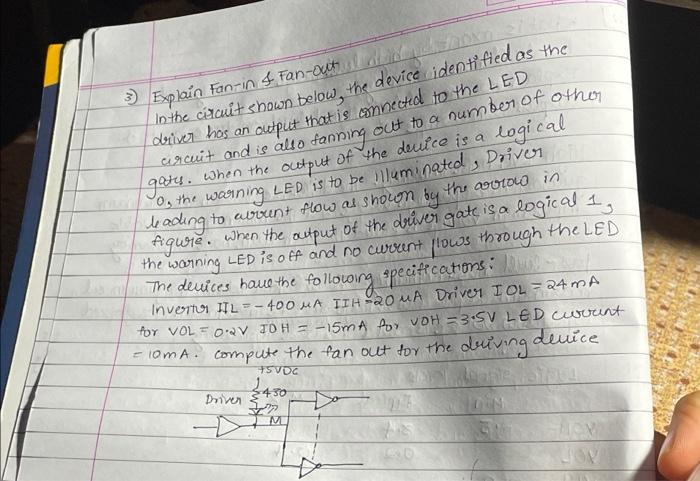 3) Explain Fan-in & Fan-out
In the circuit shown below, the device identified as the
driver has an output that is connected to the LED
circuit and is also fanning out to a number of other
gates. When the output of the device is a logical
0, the warning LED is to be illuminated, Driver
leading to current flow as shown by the arrow in
figure. When the output of the driver gate is a logical 1,
the warning LED is off and no current flows through the LED
The devices have the following specifications:
Inverter IIL = -400 μA IIH = 20 μA Driver IOL = 24 mA
for VOL = 0.2V IOH = -15mA for VOH = 3.5V LED current
= 10mA. compute the fan out for the driving device
+5VDC
430
Driver
M